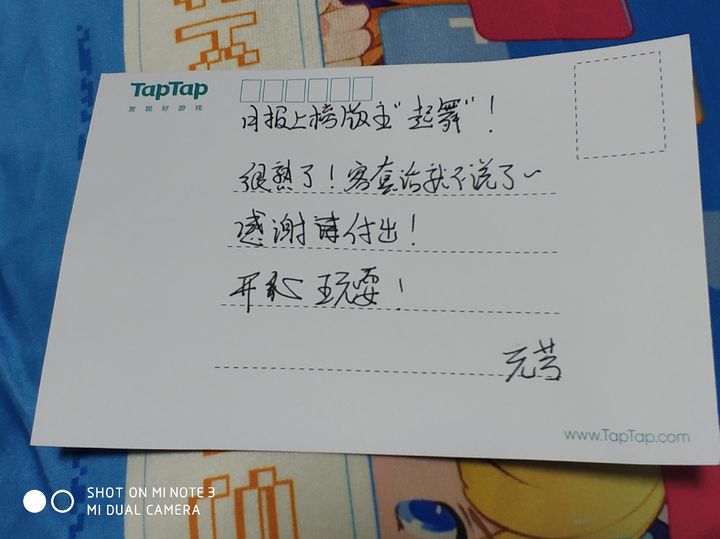 TapTap
发现好游戏
月报上榜版主“起舞”！
很熟了！客套话就不说了~
感谢 付出！
开心 玩耍！
www.TapTap.com
SHOT ON MI NOTE 3
MI DUAL CAMERA